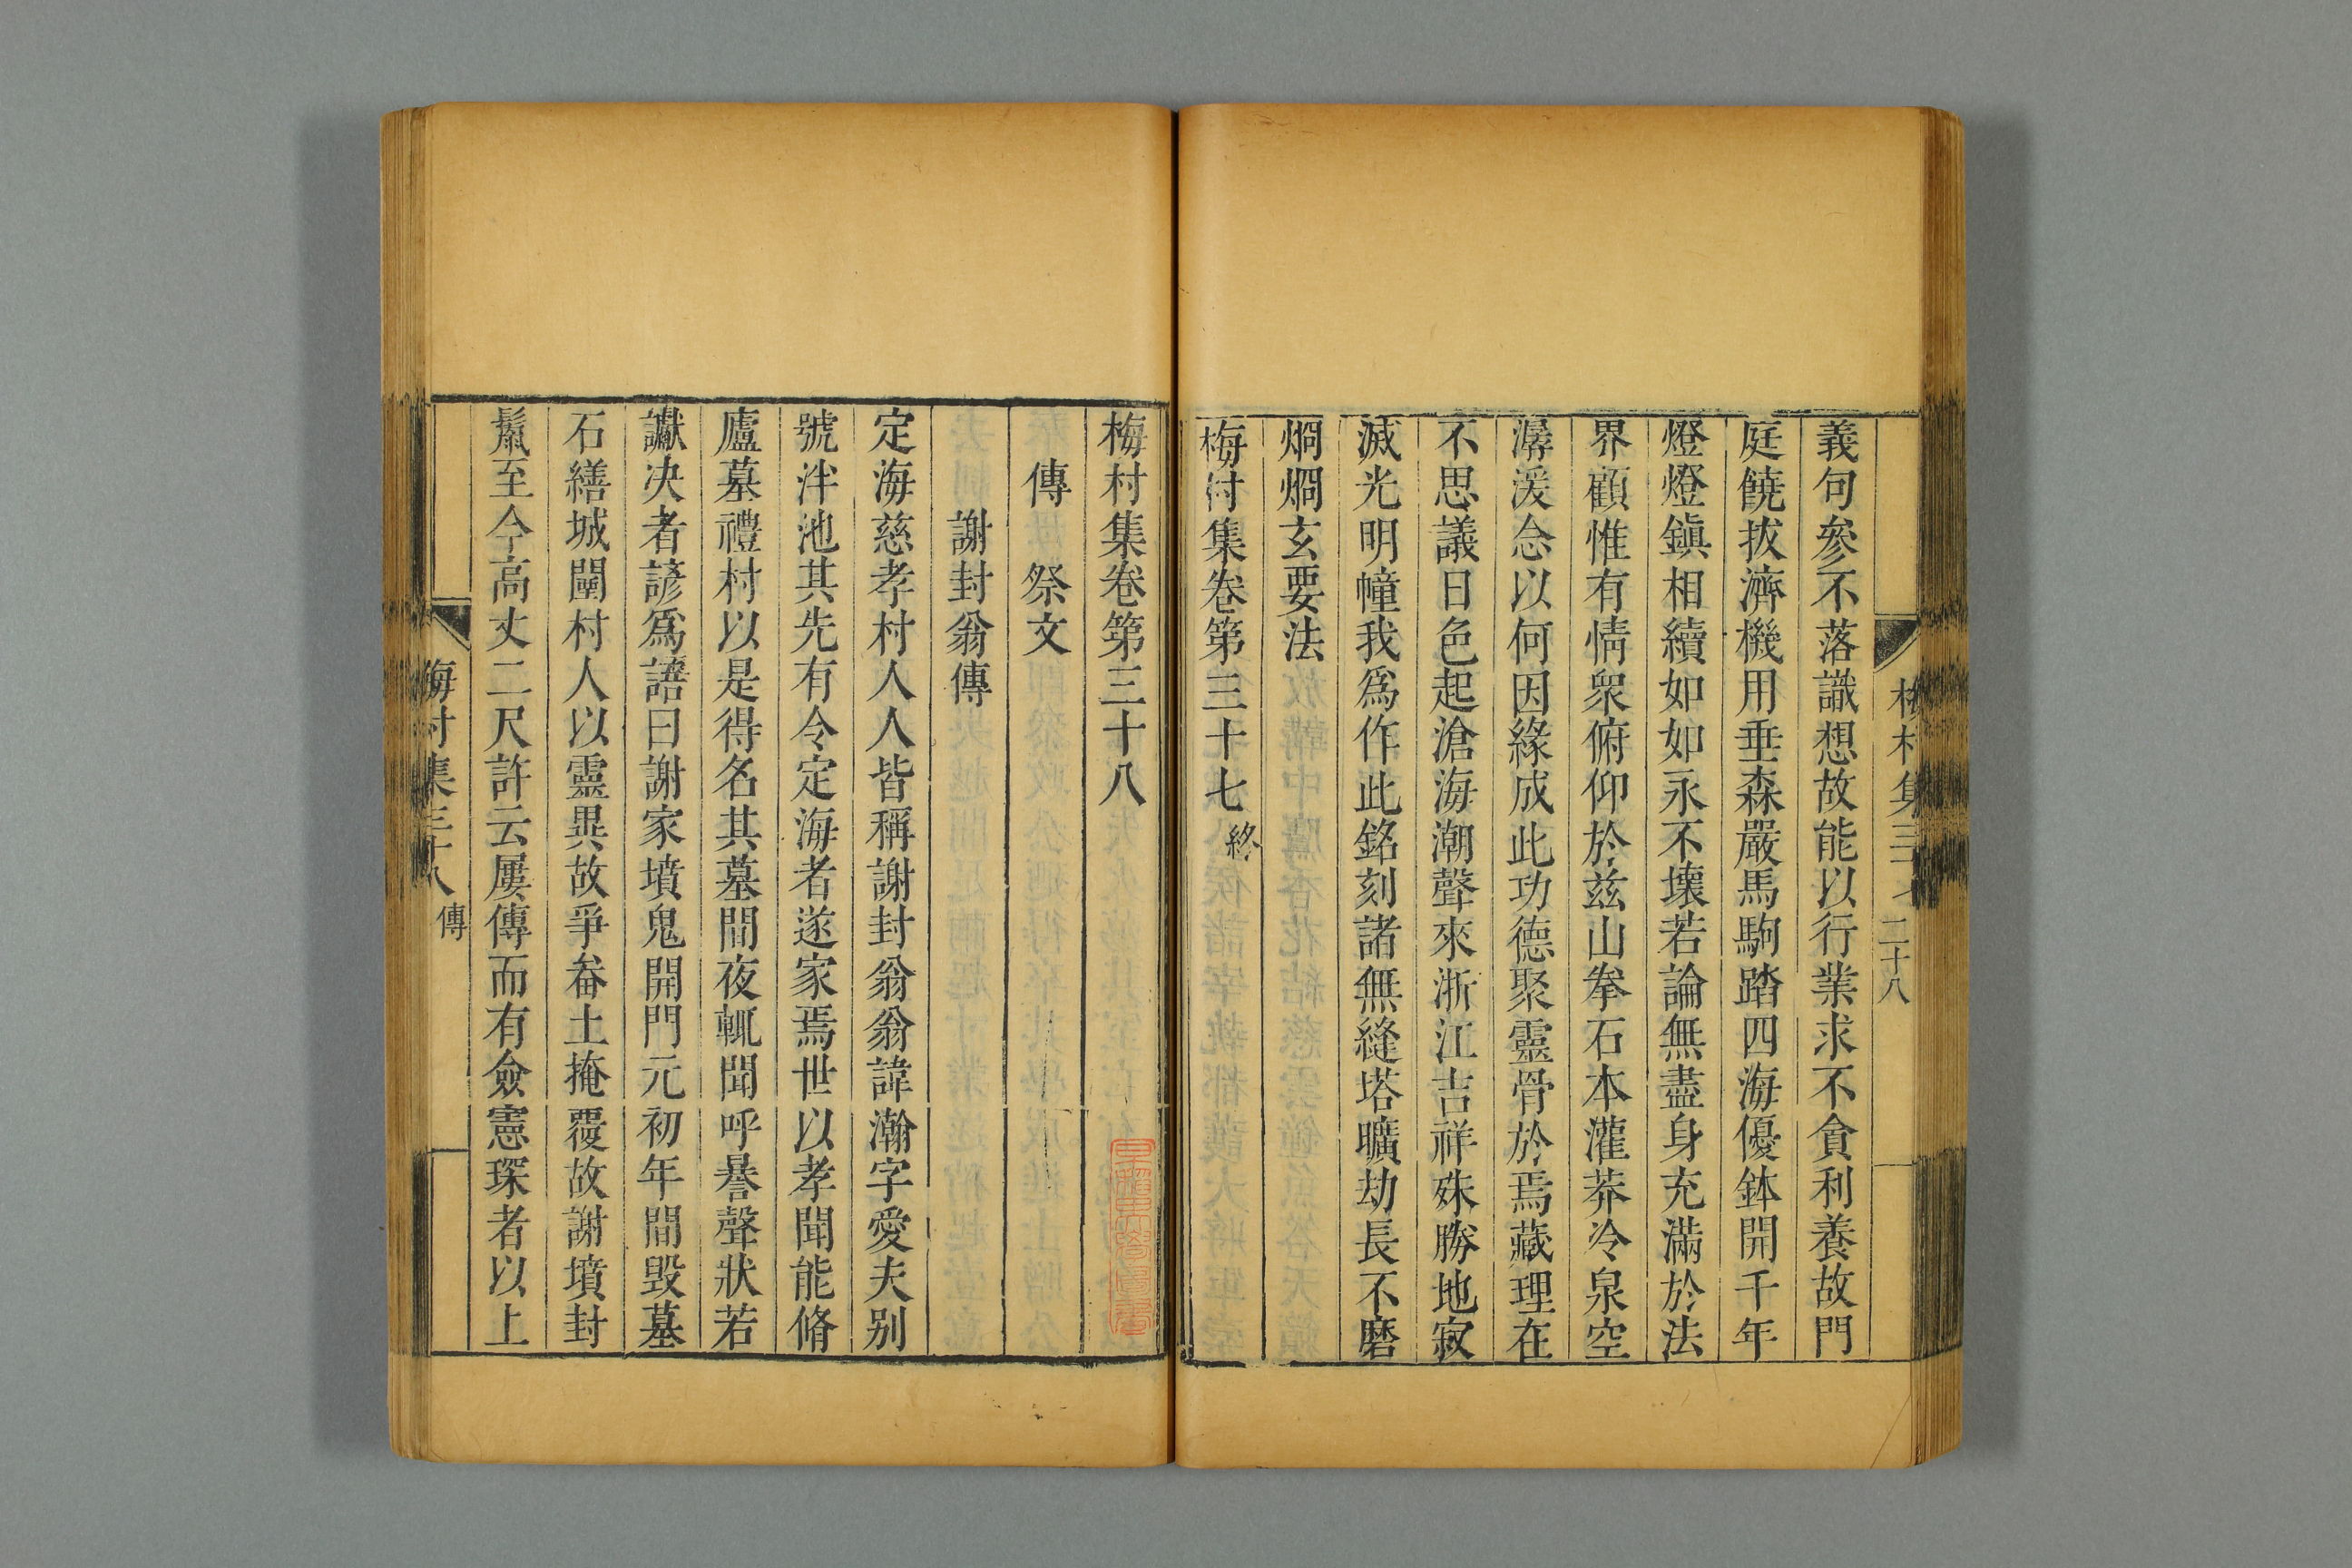 梅村集三十七 二十八
義句參不落識想故能以行業求不貪利養故門
庭饒拔濟機用垂森嚴馬駒踏四海優鉢開千年
燈燈鎭相續如如永不壞若論無盡身充滿於法
界顧惟有情衆俯仰於兹山拳石本灌莽冷泉空
潺湲念以何因緣成此功德聚靈骨於焉藏理在
不思議日色起滄海潮聲來浙江吉祥殊勝地寂
滅光明幢我爲作此銘刻諸無縫塔曠劫長不磨
烱烱玄要法
梅村集卷第三十七終
梅村集卷第三十八
傳 祭文
謝封翁傳
定海慈孝村人人皆稱謝封翁翁諱瀚字愛夫别
號泮池其先有令定海者遂家焉世以孝聞能脩
廬墓禮村以是得名其墓間夜輒聞呼㬥聲狀若
讞决者諺爲語曰謝家墳鬼開門元初年間毁墓
石繕城闉村人以靈異故爭畚土掩覆故謝墳封
鬛至今高丈二尺許云屢傳而有僉憲琛者以上
梅村集三十八 傳